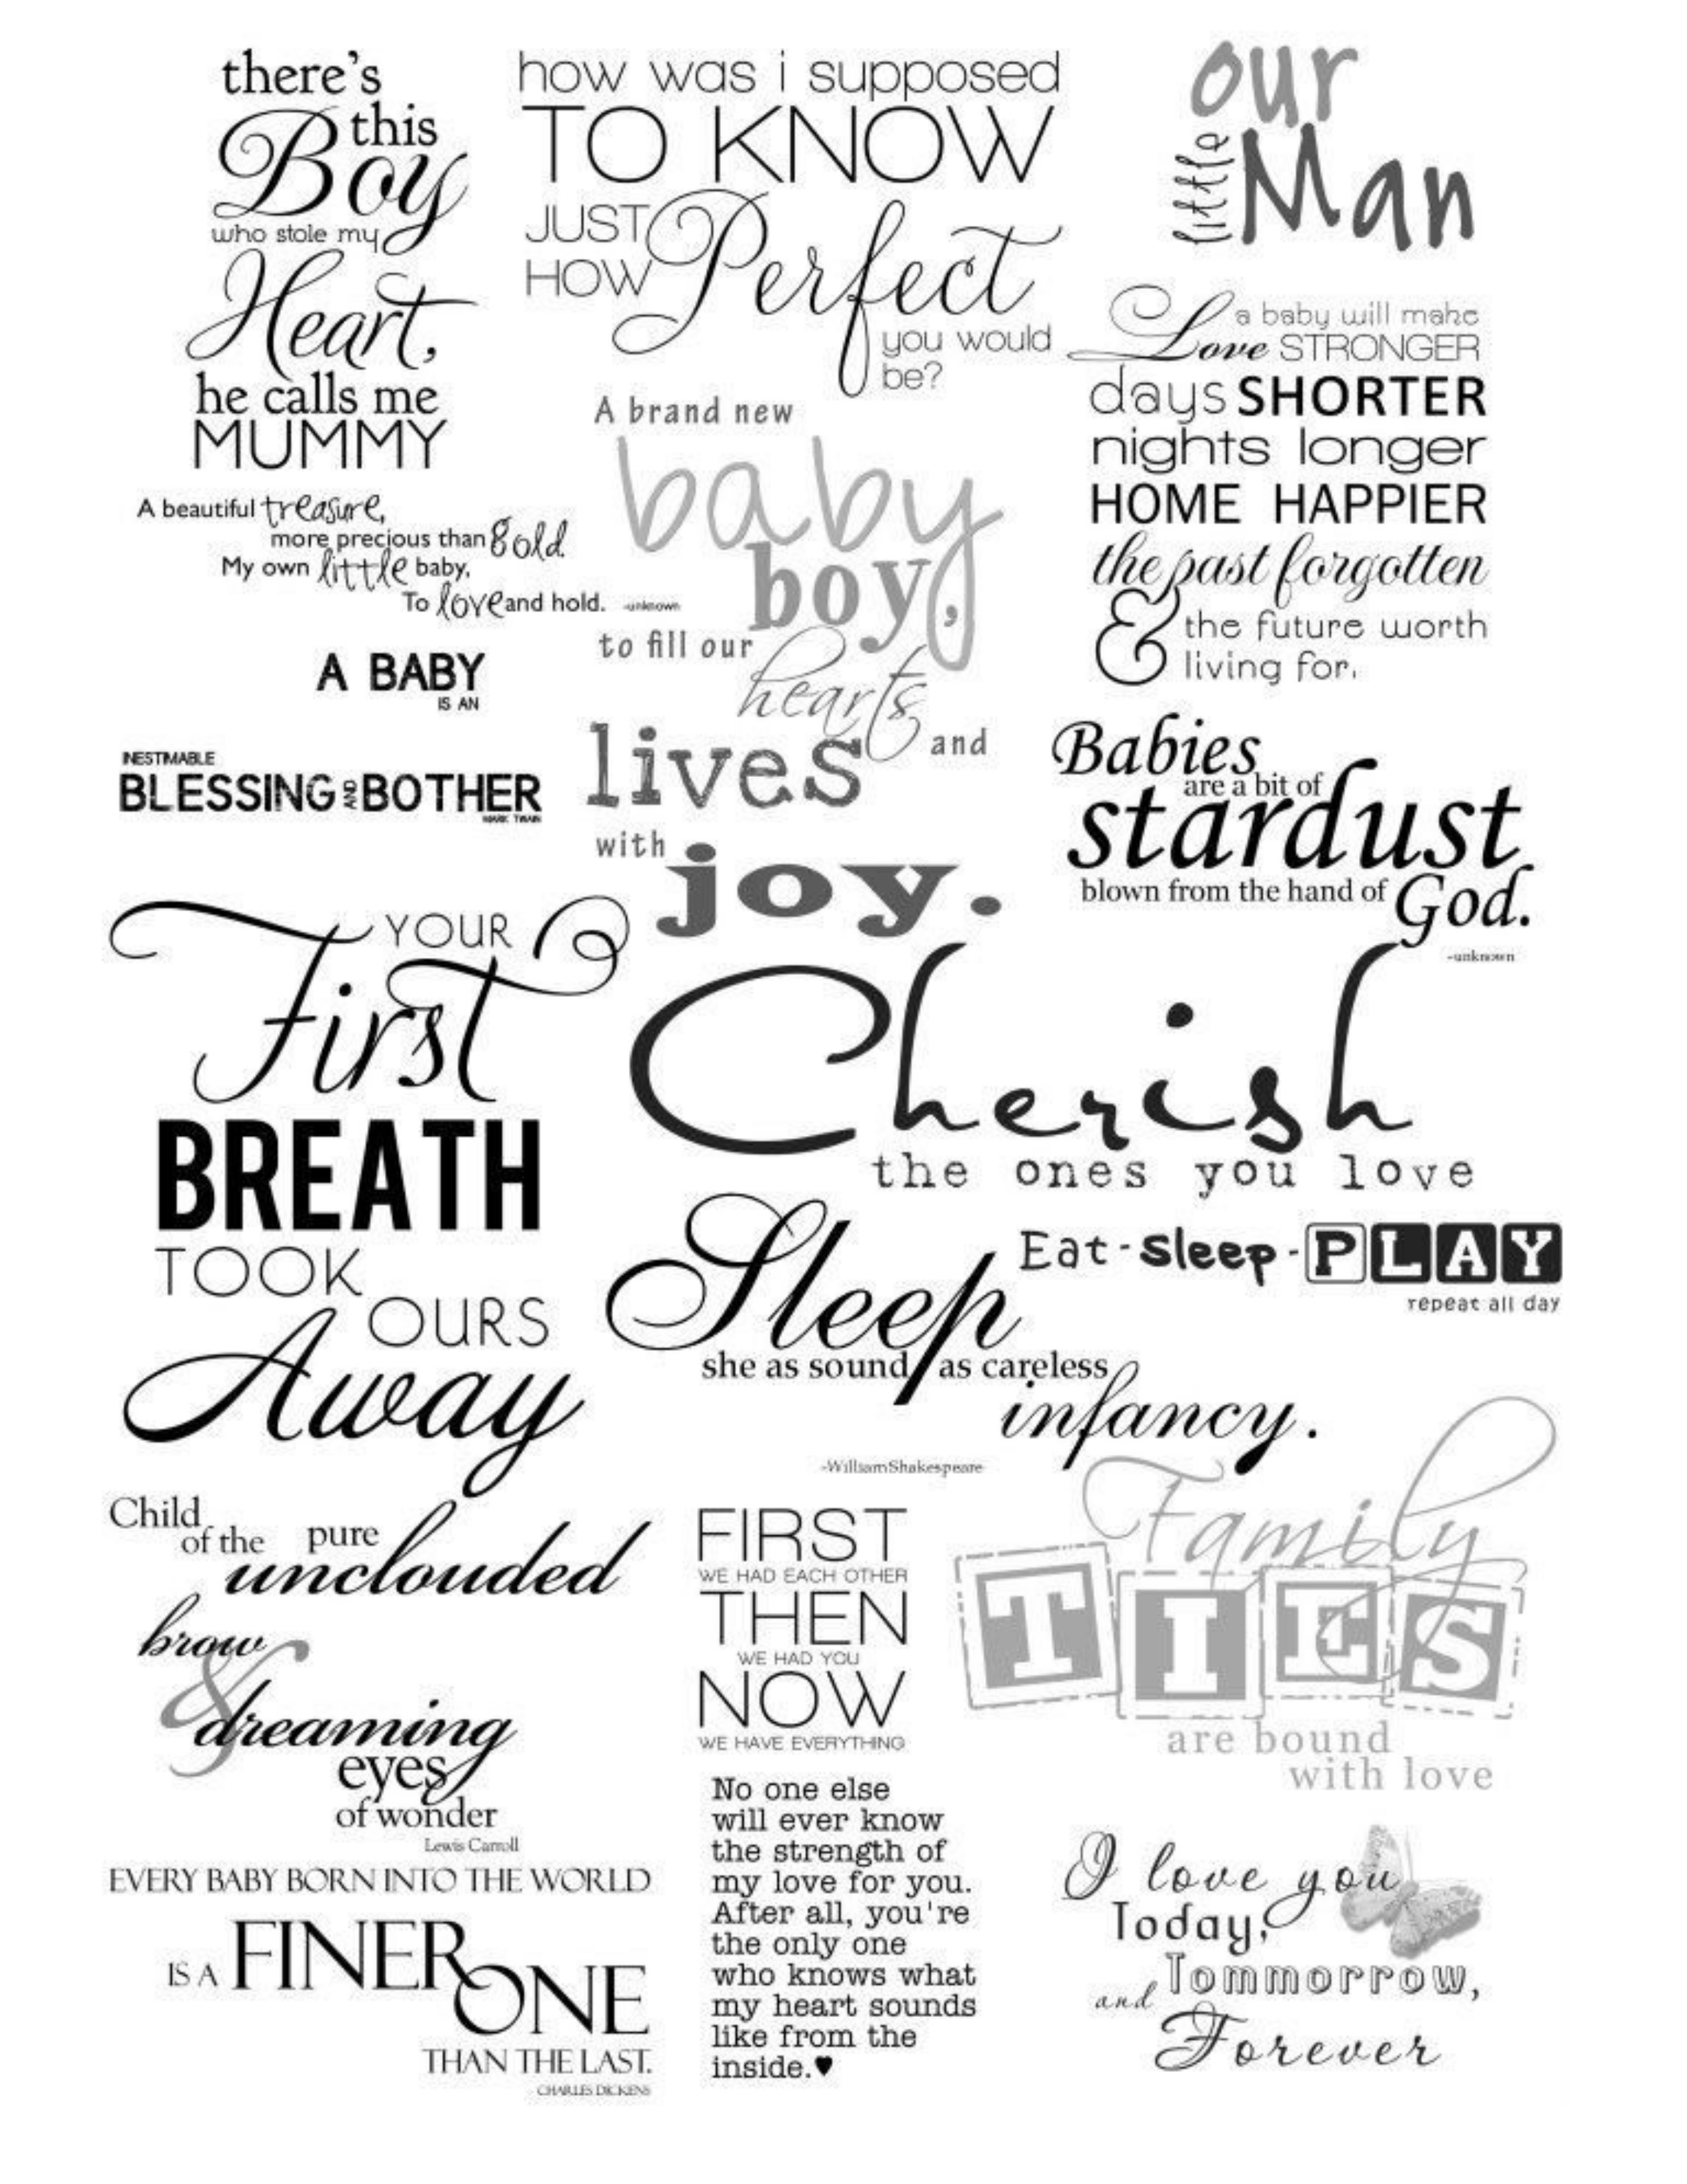 there's
this
Boy
who stole my
Heart,
he calls me
MUMMY
how was i supposed
TO KNOW
JUST
HOW Perfect
you would
be?
our
little Man
a baby will make
Love STRONGER
days SHORTER
nights longer
HOME HAPPIER
the past forgotten
& the future worth
living for.
A beautiful treasure,
more precious than Gold
My own little baby,
To love and hold. -unknown
A brand new
baby
boy,
to fill our
hearts
and
lives
with
joy.
A BABY
IS AN
INESTIMABLE
BLESSING AND BOTHER
MARK TWAIN
Babies
are a bit of
stardust
blown from the hand of God.
-unknown
YOUR
First
BREATH
TOOK
OURS
Away
Cherish
the ones you love
Eat-Sleep-PLAY
repeat all day
Sleep
she as sound as careless
infancy.
-William Shakespeare
Child
of the pure
unclouded
brow
&
dreaming
eyes
of wonder
Lewis Carroll
FIRST
WE HAD EACH OTHER
THEN
WE HAD YOU
NOW
WE HAVE EVERYTHING
Family
TIES
are bound
with love
No one else
will ever know
the strength of
my love for you.
After all, you're
the only one
who knows what
my heart sounds
like from the
inside.♥
I love you
Today,
and Tommorrow,
Forever
EVERY BABY BORN INTO THE WORLD
IS A FINER
ONE
THAN THE LAST.
CHARLES DICKENS